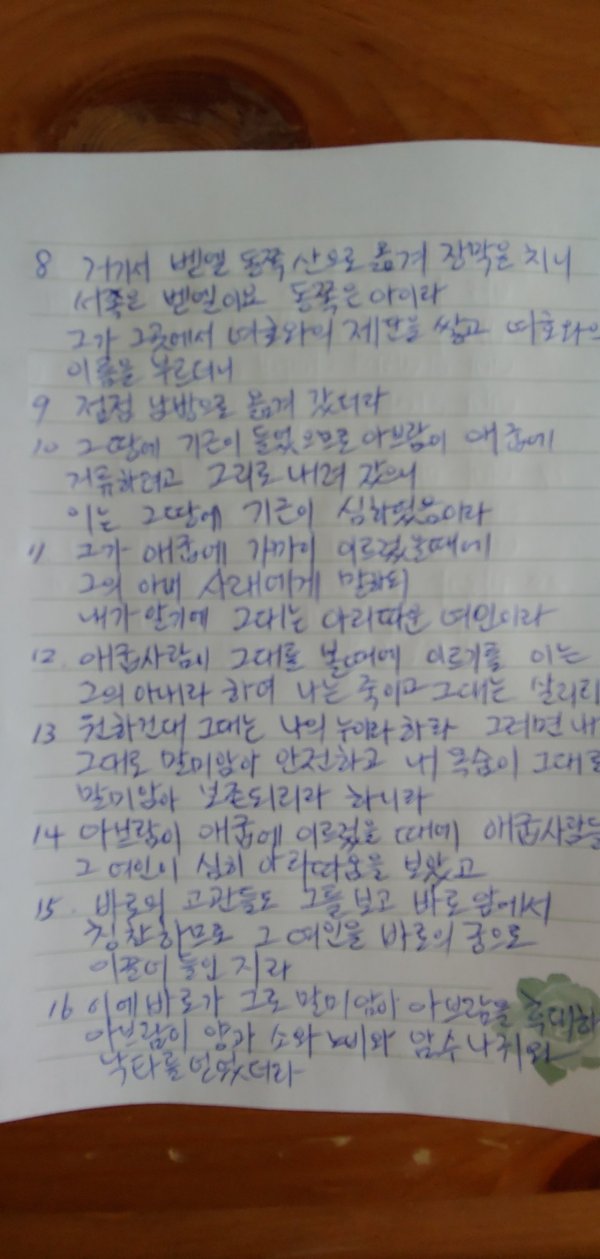 8 거기서 벧엘 동쪽 산으로 옮겨 장막을 치니
서쪽은 벧엘이요 동쪽은 아이라
그가 그곳에서 여호와의 제단을 쌓고 여호와의
이름을 부르더니
9 점점 남방으로 옮겨 갔더라
10 그 땅에 기근이 들었으므로 아브람이 애굽에
거류하려고 그리로 내려 갔으니
이는 그 땅에 기근이 심하였음이라
11 그가 애굽에 가까이 이르렀을때에
그의 아내 사래에게 말하되
내가 알기에 그대는 아리따운 여인이라
12. 애굽사람이 그대를 볼때에 이르기를 이는
그의 아내라 하여 나는 죽이고 그대는 살리리
13 원하건대 그대는 나의 누이라 하라 그러면 내
그대로 말미암아 안전하고 내 목숨이 그대로
말미암아 보존되리라 하니라
14 아브람이 애굽에 이르렀을 때에 애굽사람들
그 여인이 심히 아리따움을 보았고
15. 바로의 고관들도 그를 보고 바로 앞에서
칭찬하므로 그 여인을 바로의 궁으로
이끌어 들인 지라
16 이에 바로가 그로 말미암아 아브람을 후대하
아브람이 양과 소와 노비와 암수 나귀와
낙타를 얻었더라